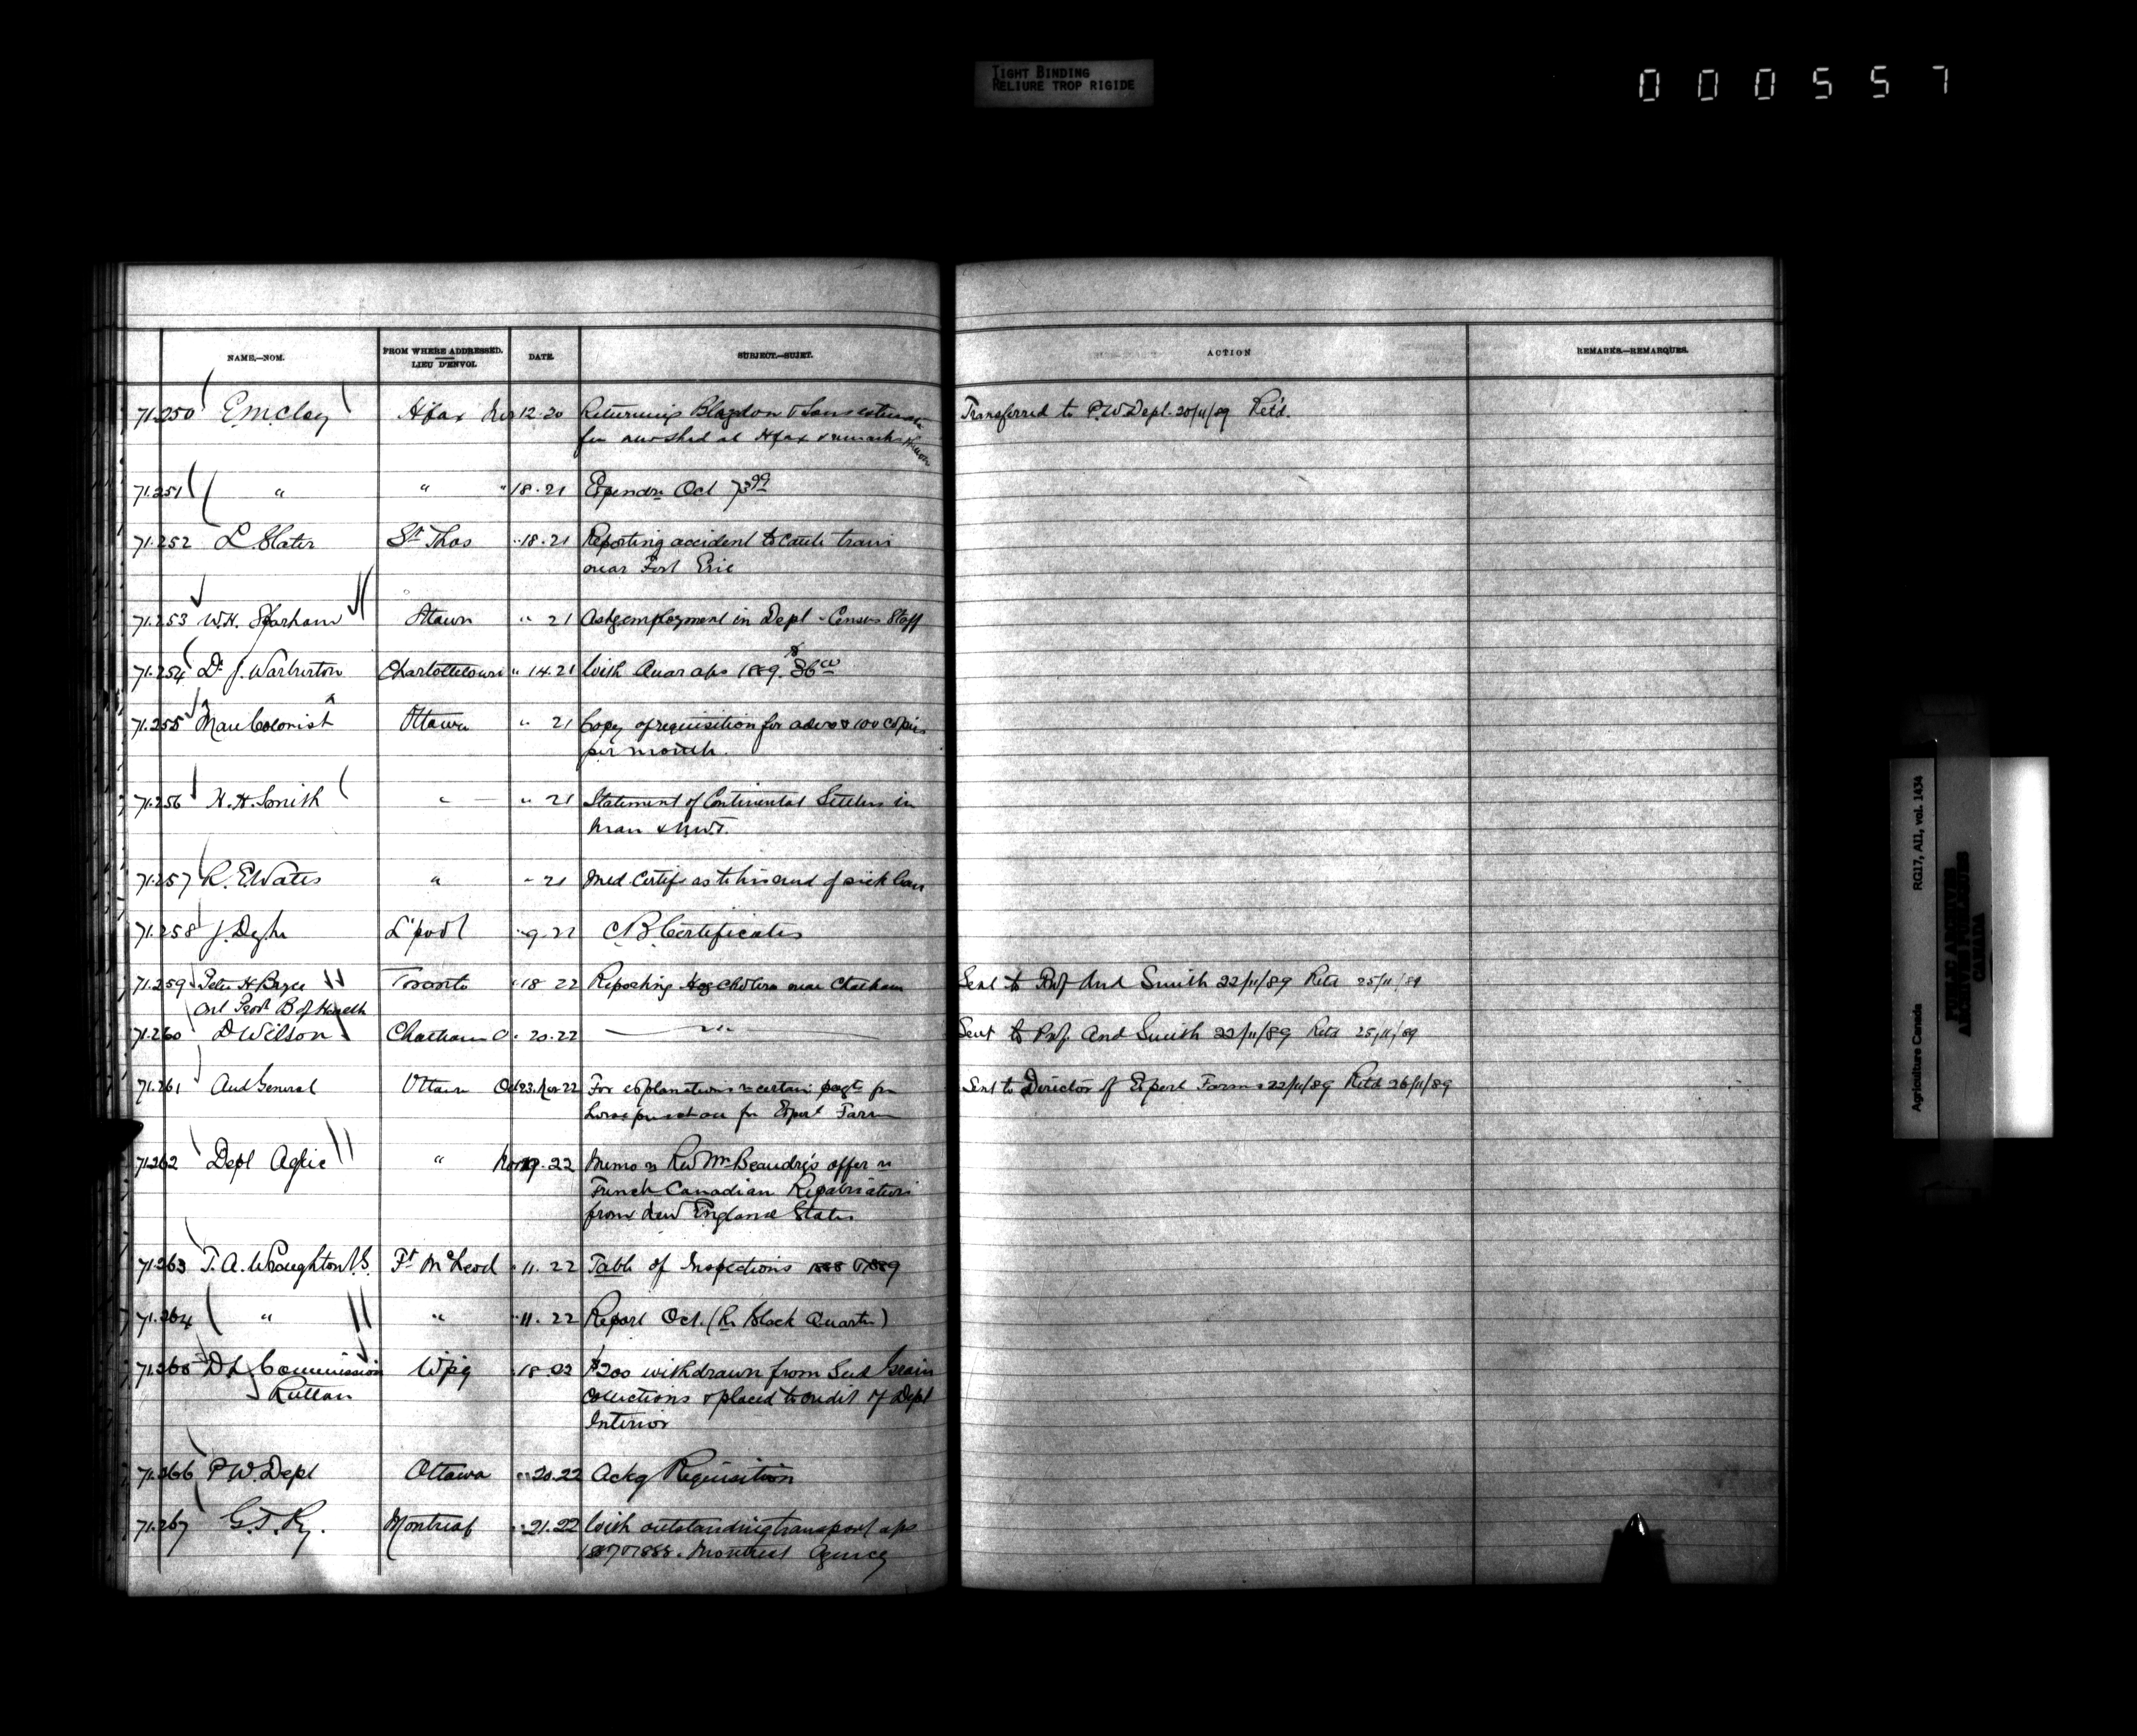 TIGHT BINDING
RELIURE TROP RIGIDE
000557
NAME.—NOM. FROM WHERE ADDRESSED. LIEU D'ENVOI. DATE. SUBJECT.—SUJET. ACTION REMARKS.—REMARQUES.
71.250 E.M. Clay Hfax Nov 12.20 Returning Blagdon & Sons
for new shed at Hfax & remarks Transferred to P.W. Dept. 20/11/89 Retd.
71.251 " " " 18.21 Expendre Oct 73 99
71.252 L. Slater St Thos " 18.21 Reporting accident to Cattle train
near Fort Erie
71.253 W.H. Sparham Ottawa " 21 Askg employment in Dept - Census Staff
71.254 Dr J. Warburton Charlottetown " 14.21 With Quar aps 1889. $36 00
71.255 Man Colonist Ottawa " 21 Copy of requisition for advts & 100 copies
per month.
71.256 H.H. Smith " " 21 Statement of Continental Settlers in
Man & N.W.T.
71.257 R.E. Wates " " 21 Med. Certife as to his end of sick leave
71.258 J. Dyke L'pool " 9.22 C.B. Certificates
71.259 Peter H Bryce Toronto " 18 22 Reporting Hog Cholera near Chatham Sent to Prof And Smith 22/11/89 Retd 25/11/89
Ont Provl B of Health
71.260 D Wilson Chatham O " 20.22 " Sent to Prof. And Smith 22/11/89 Retd 25/11/89
71.261 Aud General Ottawa Oct 23. Nov 22 For explanations re certain payts for Sent to Director of Experl Farms 22/11/89 Retd 26/11/89
horse purchase for Experl Farm
71.262 Dept Agric " Nov 19.22 Memo re Revd Mr Beaudry's offer re
French Canadian Repatriation
from New England States
71.263 T.A. Wroughton V.S. Ft McLeod " 11.22 Table of Inspections 1888 & 1889
71.264 " " " 11.22 Report Oct. (Re Black Quarter)
71.265 D L Commission Wpg " 18.22 $200 withdrawn from Seed Grain
Ruttan Collections & placed to credit of Dept
Interior
71.266 P.W. Dept Ottawa " 20.22 Ackg Requisition
71.267 G.T. Ry. Montreal " 21.22 With outstanding transport aps
1887 & 1888. Montreal Agency
Agriculture Canada RG17, AII, vol. 1434
PUBLIC ARCHIVES
ARCHIVES PUBLIQUES
CANADA